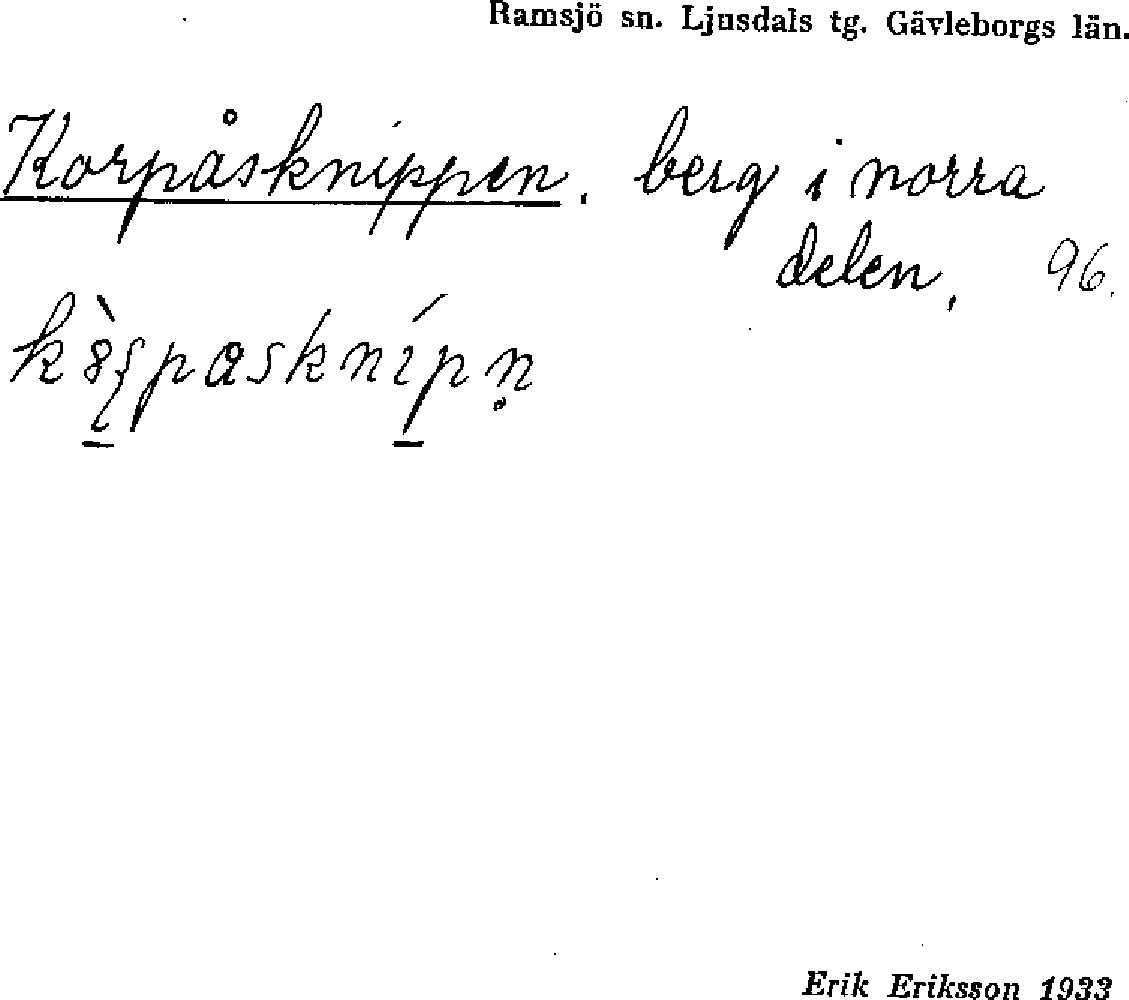 Ramsjö sn. Ljusdals tg. Gävleborgs län.
Korpåsknippen, berg i norra
delen, 96.
Erik Eriksson 1933